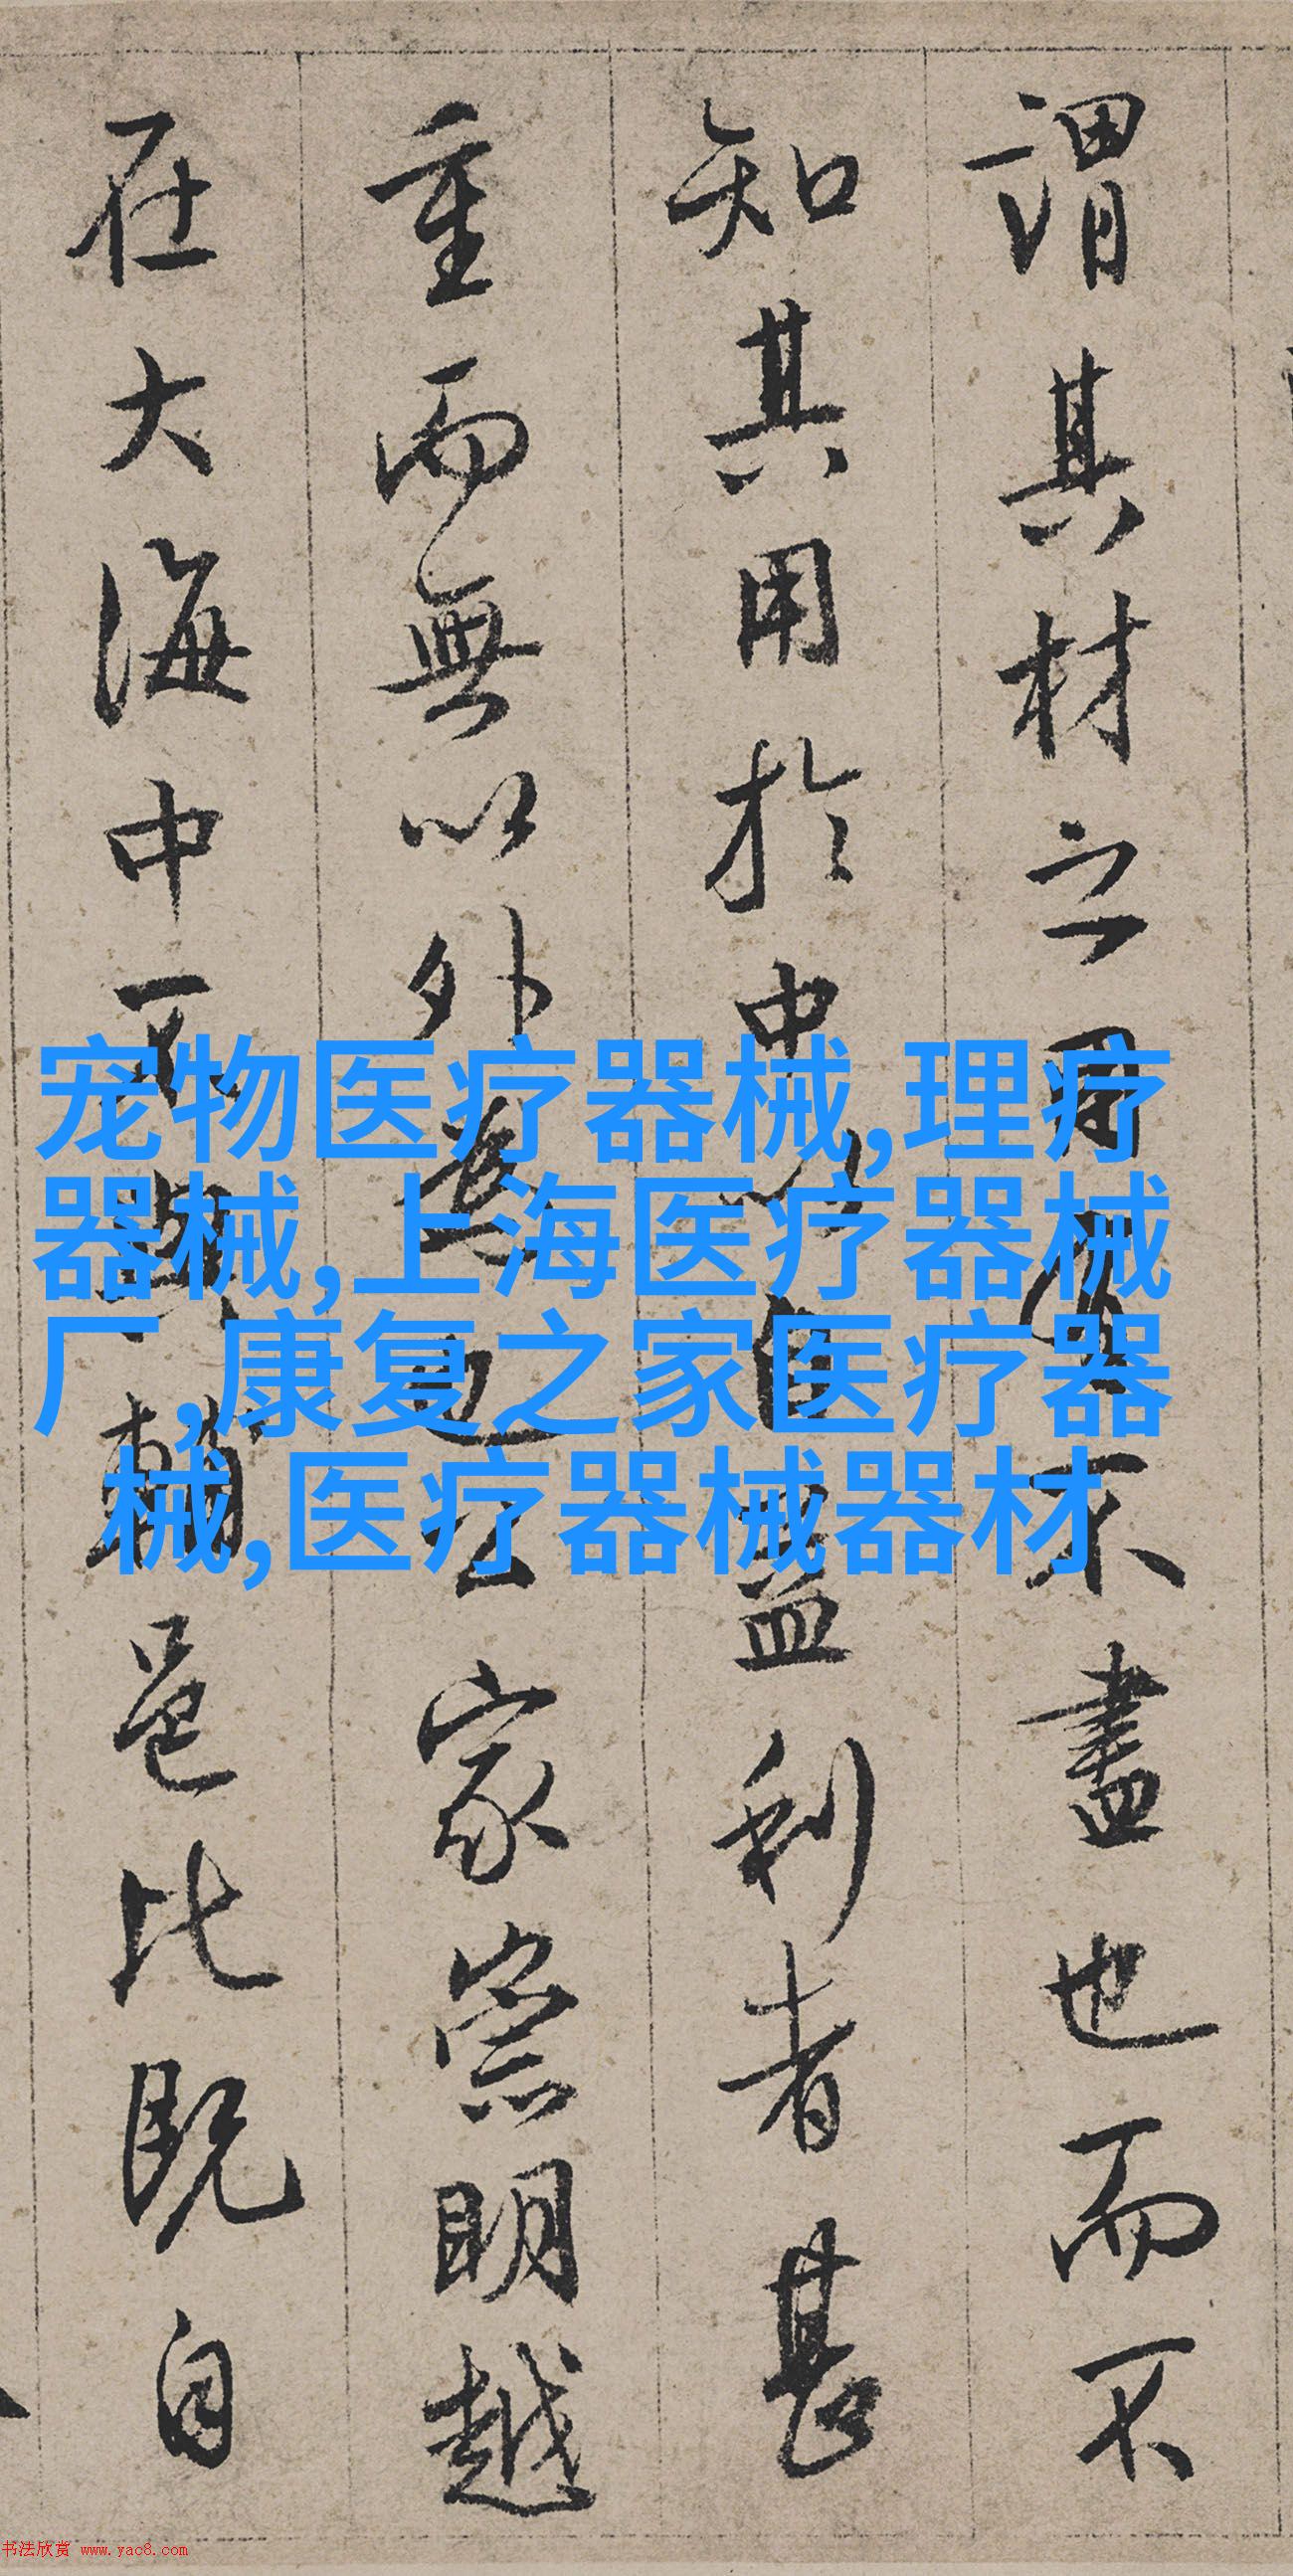 謂其材之用不盡也而不
知其用於中以自益利者甚
重而無以外也家崇明越
在大海中不與輔邑比既自
宠物医疗器械,理疗
器械,上海医疗器械
厂,康复之家医疗器
械,医疗器械器材
书法欣赏 www.yac8.com